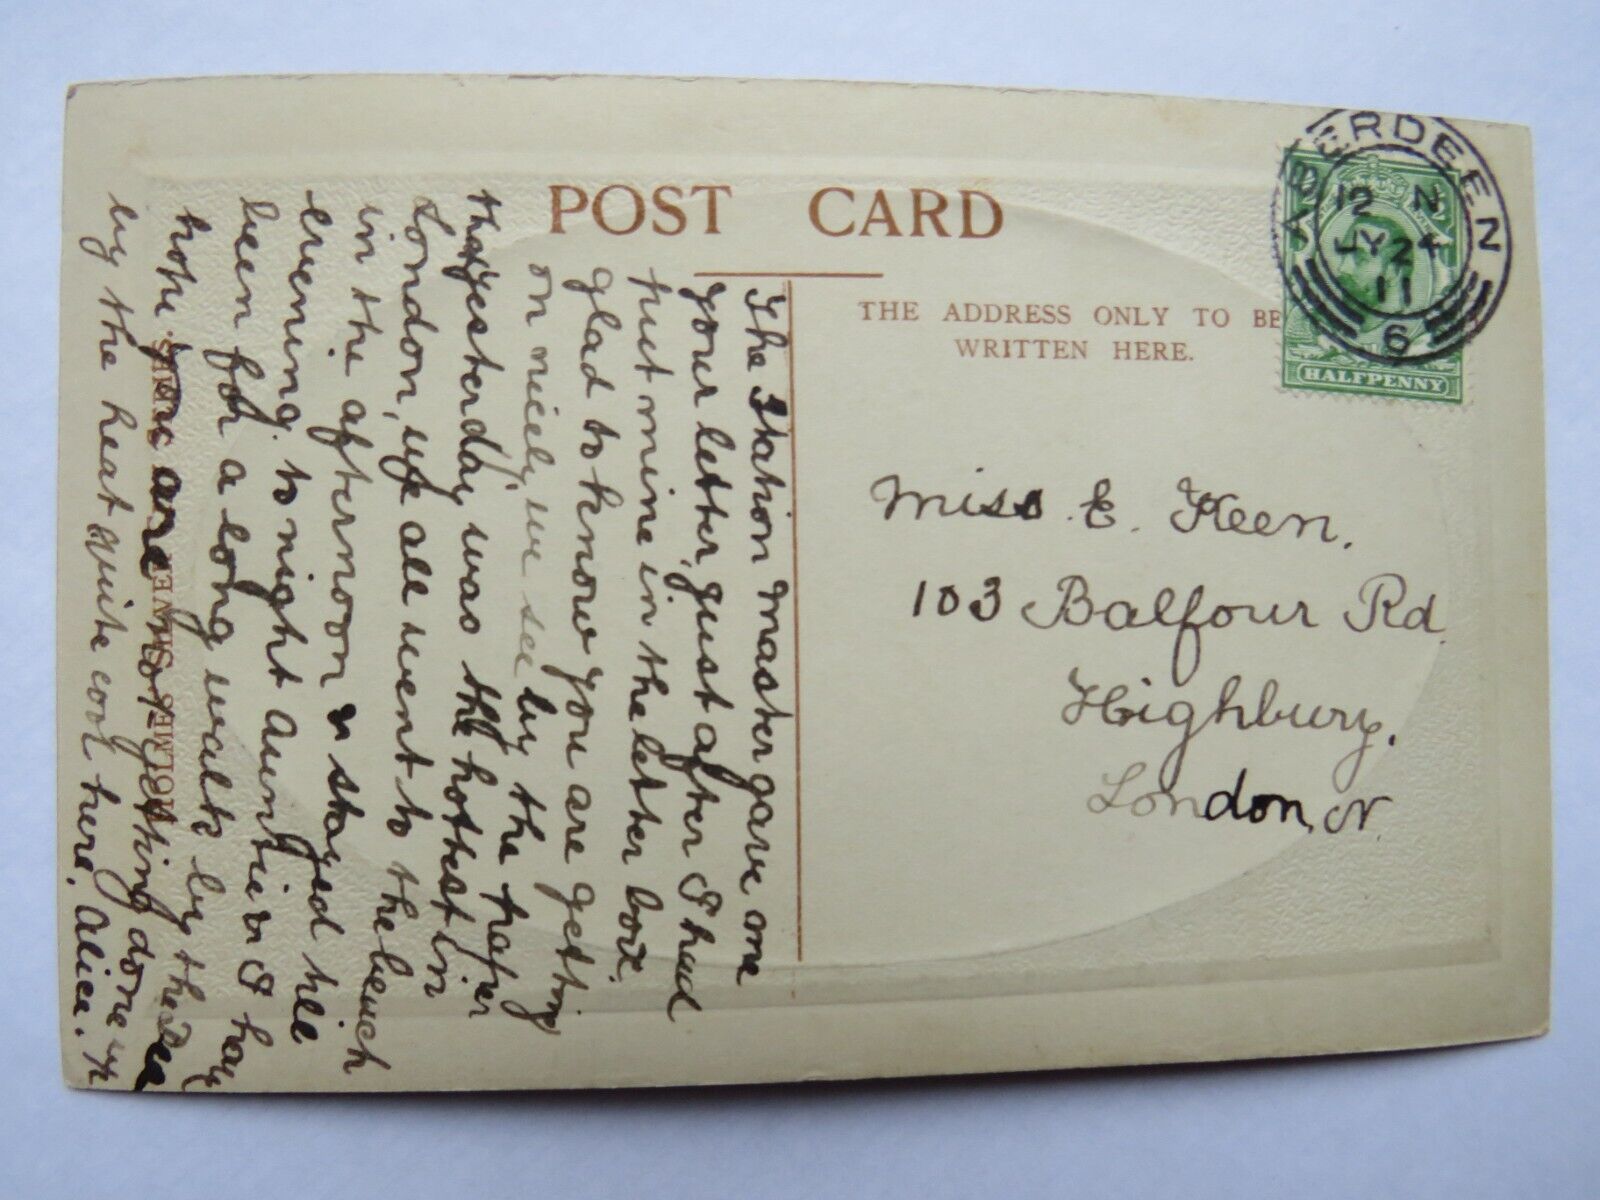 POST CARD
THE ADDRESS ONLY TO BE
WRITTEN HERE.
ABERDEEN
12 N
MY 24
11
6
HALFPENNY
Miss E. Keen.
103 Balfour Rd.
Highbury.
London, N.
The Station Master gave me
your letter just after I had
put mine in the letter box.
glad to know you are getting
on nicely, we see by the paper
that yesterday was the hottest in
London, we all went to the beach
in the afternoon & stayed till
evening. to night auntie & I have
been for a long walk by the Sea
hope you are not getting done up
by the heat quite cool here. Alice.
HOLMES SILVER SERIES.